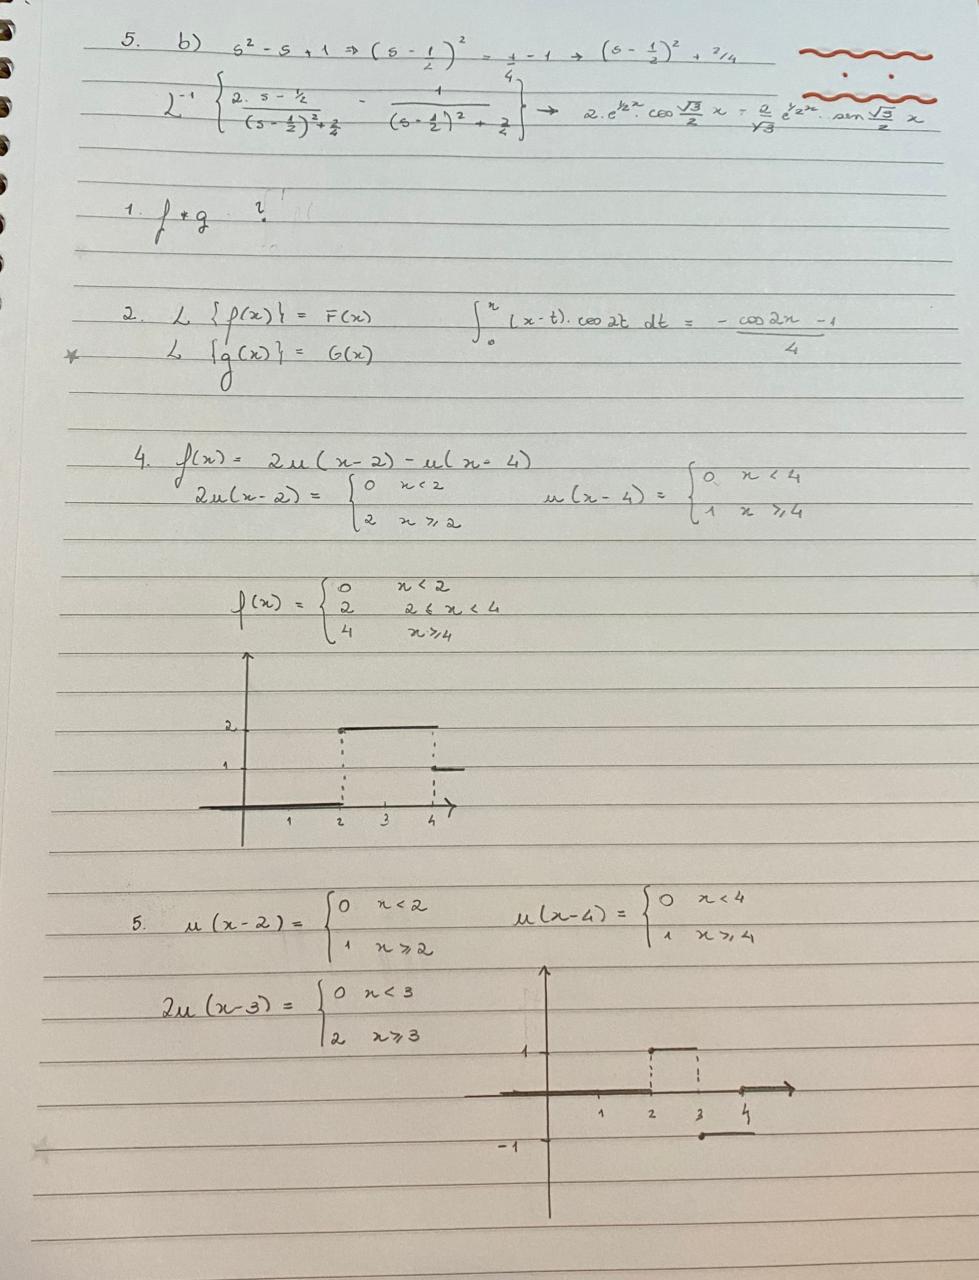 5. b) s² - s + 1 ⇒ (s - 1/2)² - 1/4 - 1 → (s - 1/2)² + 3/4
L⁻¹ { 2. s - 1/2 / (s - 1/2)² + 3/4 - 1 / (s - 1/2)² + 3/4 } → 2. e^{1/2 x} · cos √3/2 x - 2/√3 e^{1/2 x} · sen √3/2 x
1. f * g ?
2. L {f(x)} = F(x) ∫₀ˣ (x-t). cos 2t dt = - cos 2x - 1 / 4
L {g(x)} = G(x)
4. f(x) = 2u(x-2) - u(x-4)
2u(x-2) = { 0 x<2 u(x-4) = { 0 x<4
2 x ≥ 2 1 x ≥ 4
f(x) = { 0 x<2
2 2 ≤ x < 4
4 x ≥ 4
2
1
1 2 3 4
5. u(x-2) = { 0 x<2 u(x-4) = { 0 x<4
1 x ≥ 2 1 x ≥ 4
2u(x-3) = { 0 x<3
2 x ≥ 3
1
1 2 3 4
-1